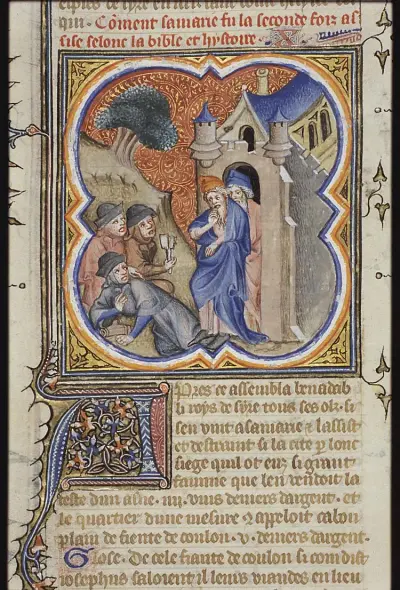 qui. Cōment samarie fu la seconde foiz as
sise selonc la bible et hystoire.
Apres ce assembla benadab
li roys de syre tous ses olz. si
sen vint a samarie et lassist
et destraint si la cite p lonc
siege quil ot si grant
famine que len vendoit la
teste dun asne .iiij. vins deniers dargent. et
le quartier dune mesure appeloit
plain de fiente de coulon .v. deniers dargent.
Glose. De cele fiante de coulon si com dist
iosephus saloient il leurs viandes en lieu